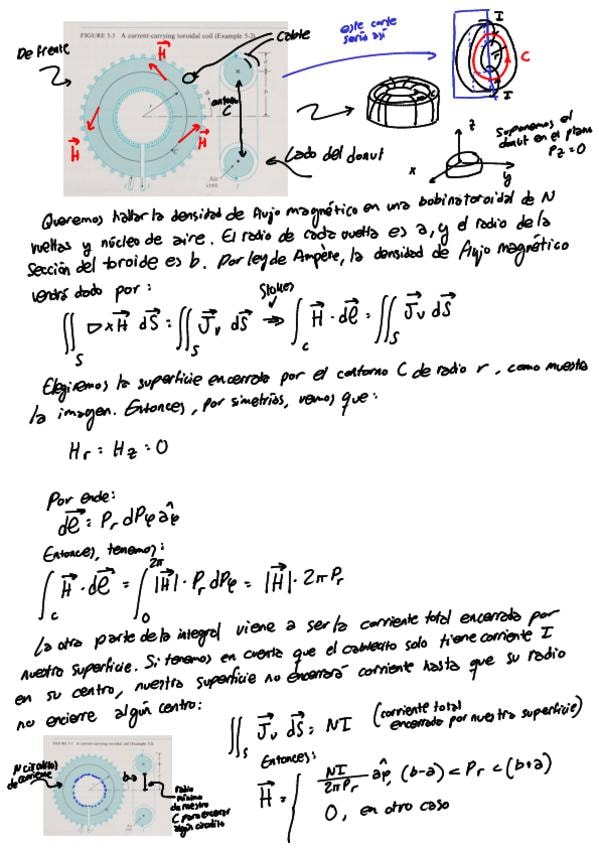 De frente
FIGURE 5-3 A current-carrying toroidal coil (Example 5-2)
Cable
este corte
sería así
I
C
I
H
H
H
contorno
C
Lado del donut
Suponemos el
donut en el plano
Pz=0
z
x
y
Queremos hallar la densidad de flujo magnético en una bobina toroidal de N
vueltas y núcleo de aire. El radio de cada vuelta es a, y el radio de la
sección del toroide es b. Por ley de Ampère, la densidad de flujo magnético
vendrá dado por:
Stokes
∬_S ∇×H⃗ dS⃗ = ∬_S J⃗v dS⃗ ⇒ ∫_C H⃗·dℓ⃗ = ∬_S J⃗v dS⃗
Elegiremos la superficie encerrada por el contorno C de radio r, como muestra
la imagen. Entonces, por simetrías, vemos que:
Hr = Hz = 0
Por ende:
dℓ⃗ = Pr dPφ âφ
Entonces, tenemos:
∫_C H⃗·dℓ⃗ = ∫_0^2π |H⃗|·Pr dPφ = |H⃗|·2π Pr
La otra parte de la integral viene a ser la corriente total encerrada por
nuestra superficie. Si tenemos en cuenta que el cablecito solo tiene corriente I
en su centro, nuestra superficie no encerrará corriente hasta que su radio
no encierre algún centro:
∬_S J⃗v dS⃗ = NI (corriente total encerrada por nuestra superficie)
FIGURE 5-3 A current-carrying toroidal coil (Example 5-2)
N circulitos
de corriente
b-a
radio
mínimo
de nuestro
C para encerrar
algún circulito
Entonces:
H⃗ = { NI/2πPr âφ, (b-a) < Pr < (b+a)
0, en otro caso